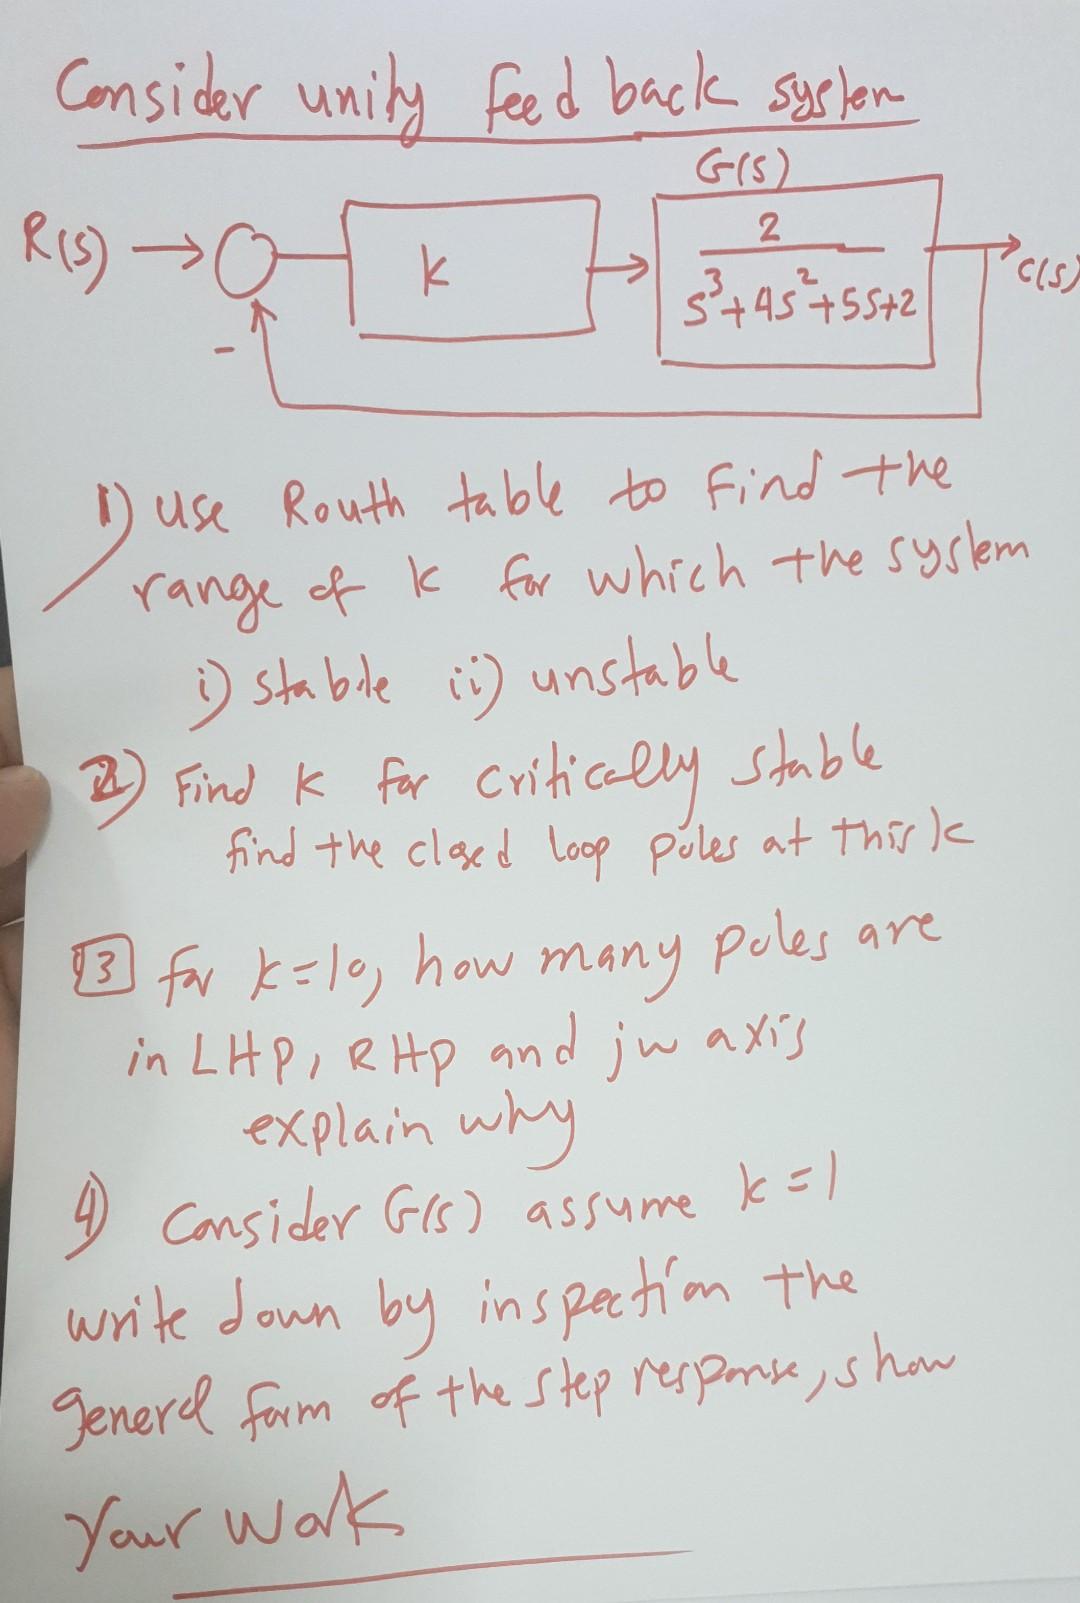 Consider unity feed back system
G(s)
R(s) k 2 C(s)
s³+4s²+5s+2
-
1) use Routh table to find the
range of k for which the system
i) stable ii) unstable
2) Find k for critically stable
find the closed loop poles at this k
3 for k=10, how many poles are
in LHP, RHP and jw axis
explain why
4) Consider G(s) assume k=1
write down by inspection the
generel form of the step response, show
your work